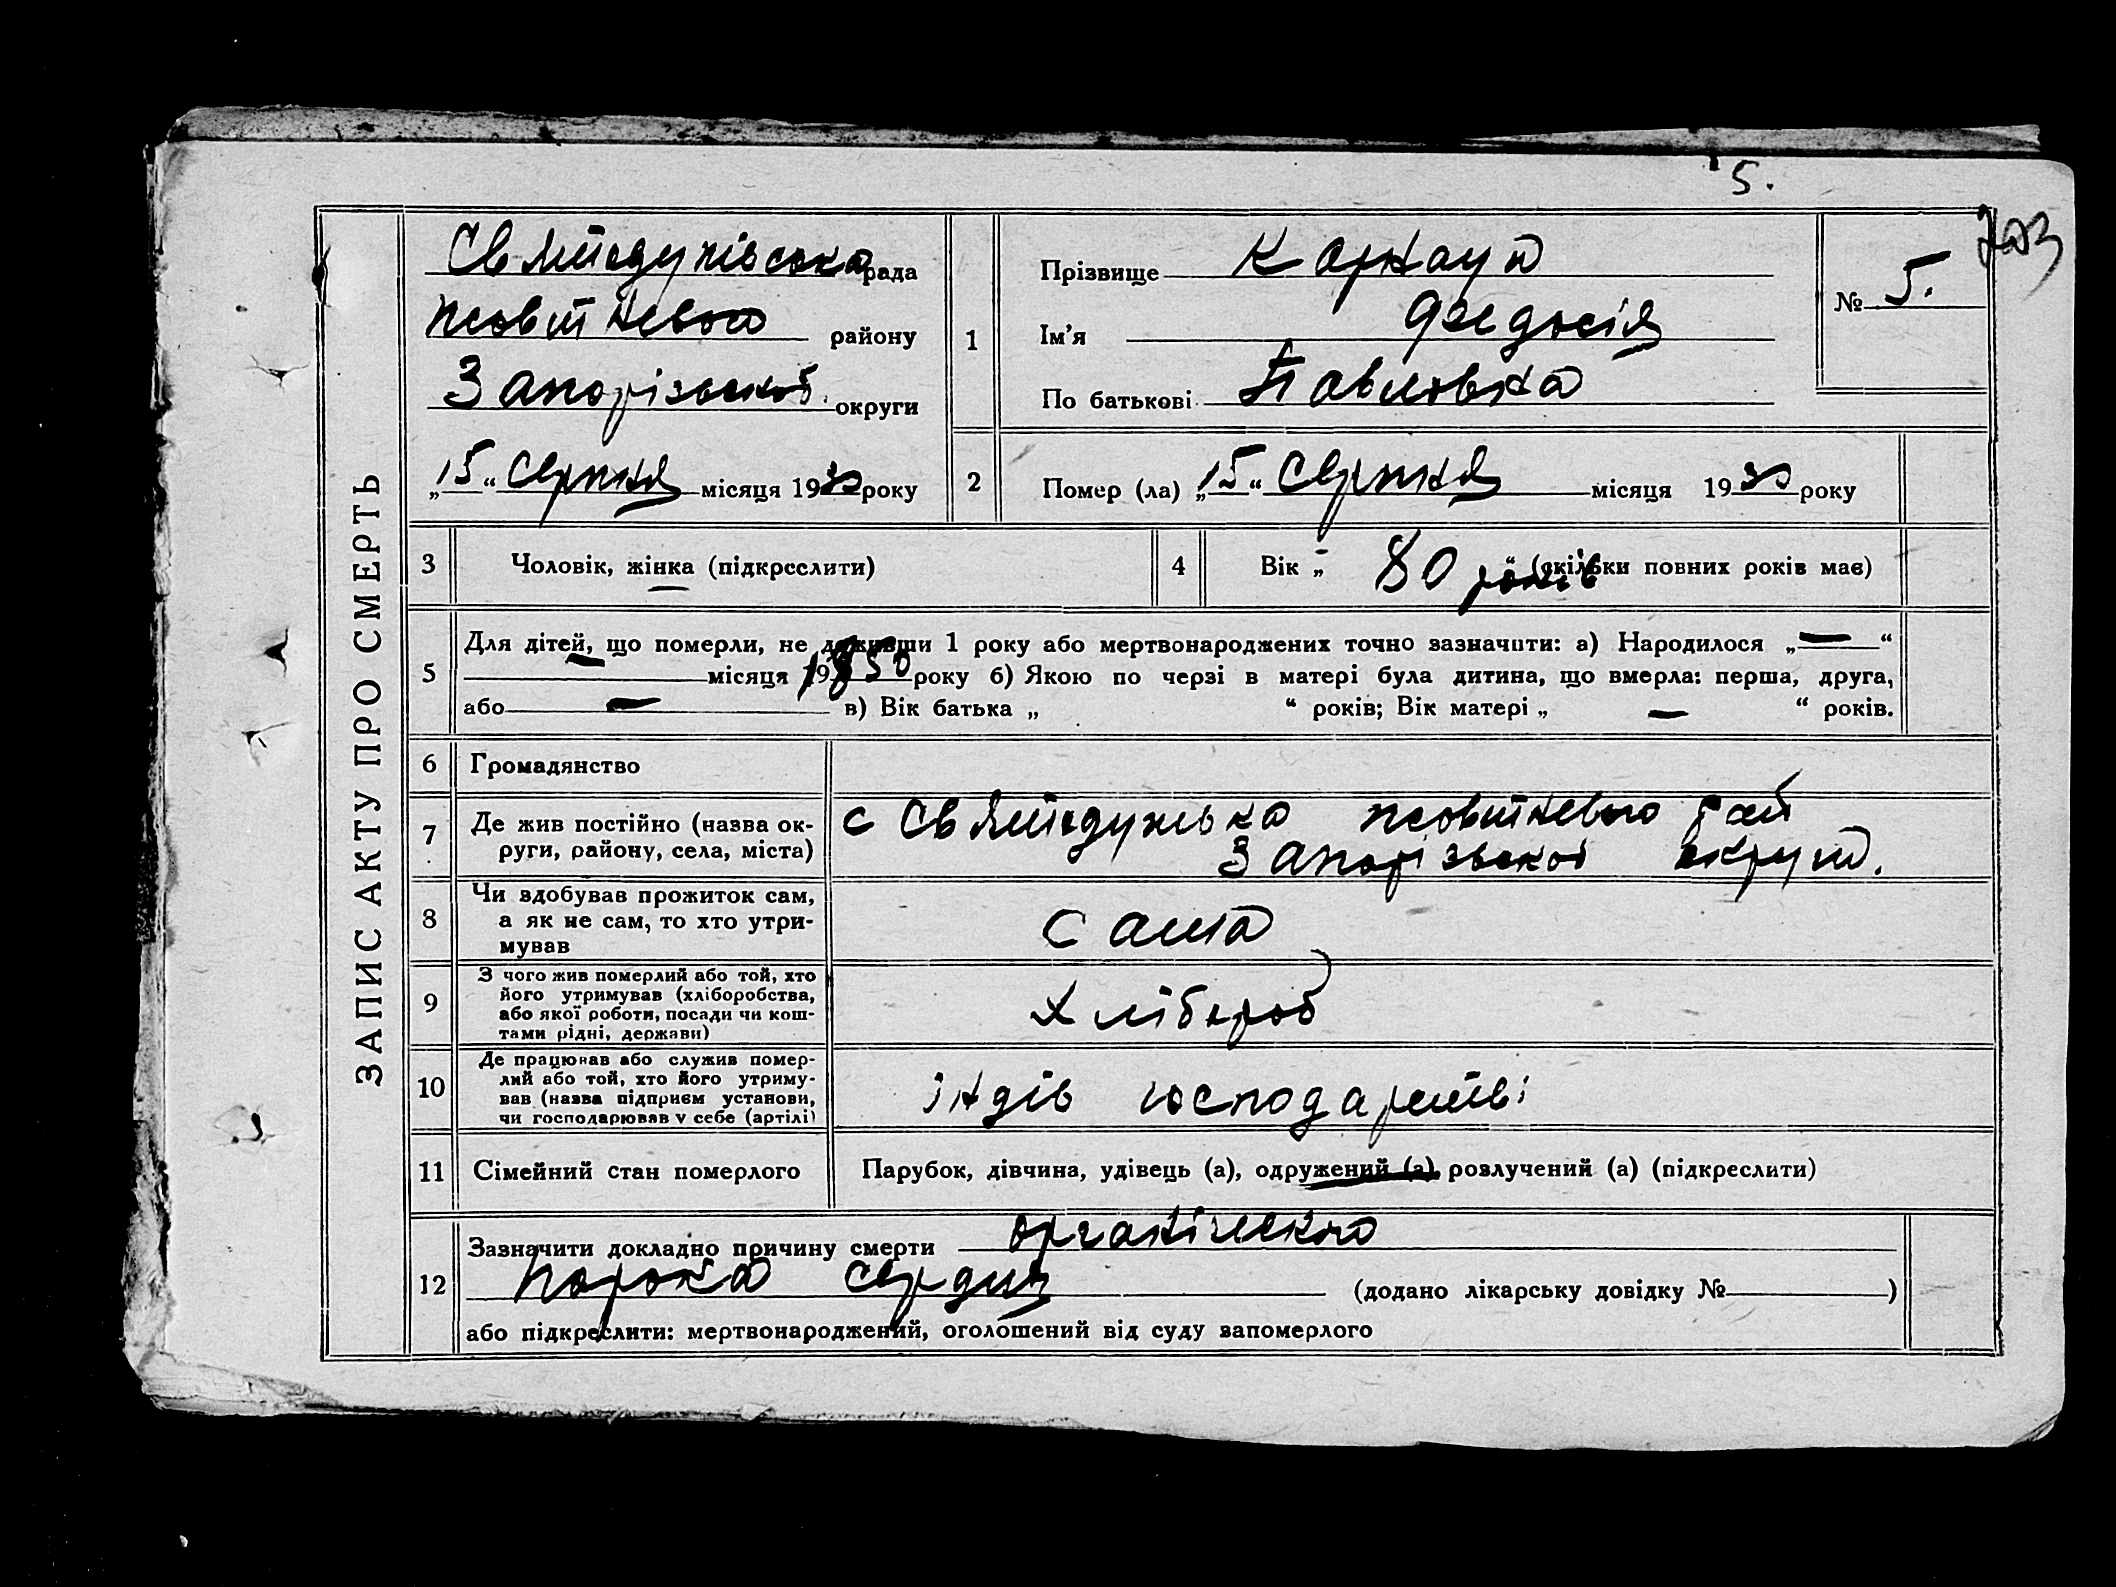 5.
203
ЗАПИС АКТУ ПРО СМЕРТЬ
Святодухівська рада
Жовтневого району
Запорізької округи
„15“ Серпня місяця 1930 року
1
Прізвище Карнаух
Ім'я Федосія
По батькові Павловна
№ 5.
2
Помер (ла) „15“ Серпня місяця 1930 року
3
Чоловік, жінка (підкреслити)
4
Вік „ 80 років “ (скільки повних років має)
5
Для дітей, що померли, не доживши 1 року або мертвонароджених точно зазначити: а) Народилося „—“
— місяця 1850 року б) Якою по черзі в матері була дитина, що вмерла: перша, друга,
або — в) Вік батька „ “ років; Вік матері „ — “ років.
6
Громадянство
7
Де жив постійно (назва ок-
руги, району, села, міста)
с Жовтневого рай
Запорізької округи.
8
Чи здобував прожиток сам,
а як не сам, то хто утри-
мував
сама
9
З чого жив померлий або той, хто
його утримував (хліборобства,
або якої роботи, посади чи кош-
тами рідні, держави)
Хлібороб
10
Де працював або служив помер-
лий або той, хто його утриму-
вав (назва підприєм установи,
чи господарював у себе (артілі)
індів господарстві
11
Сімейний стан померлого
Парубок, дівчина, удівець (а), одружений (а) розлучений (а) (підкреслити)
12
Зазначити докладно причину смерти органіческого
порока сердця (додано лікарську довідку № )
або підкреслити: мертвонароджений, оголошений від суду запомерлого